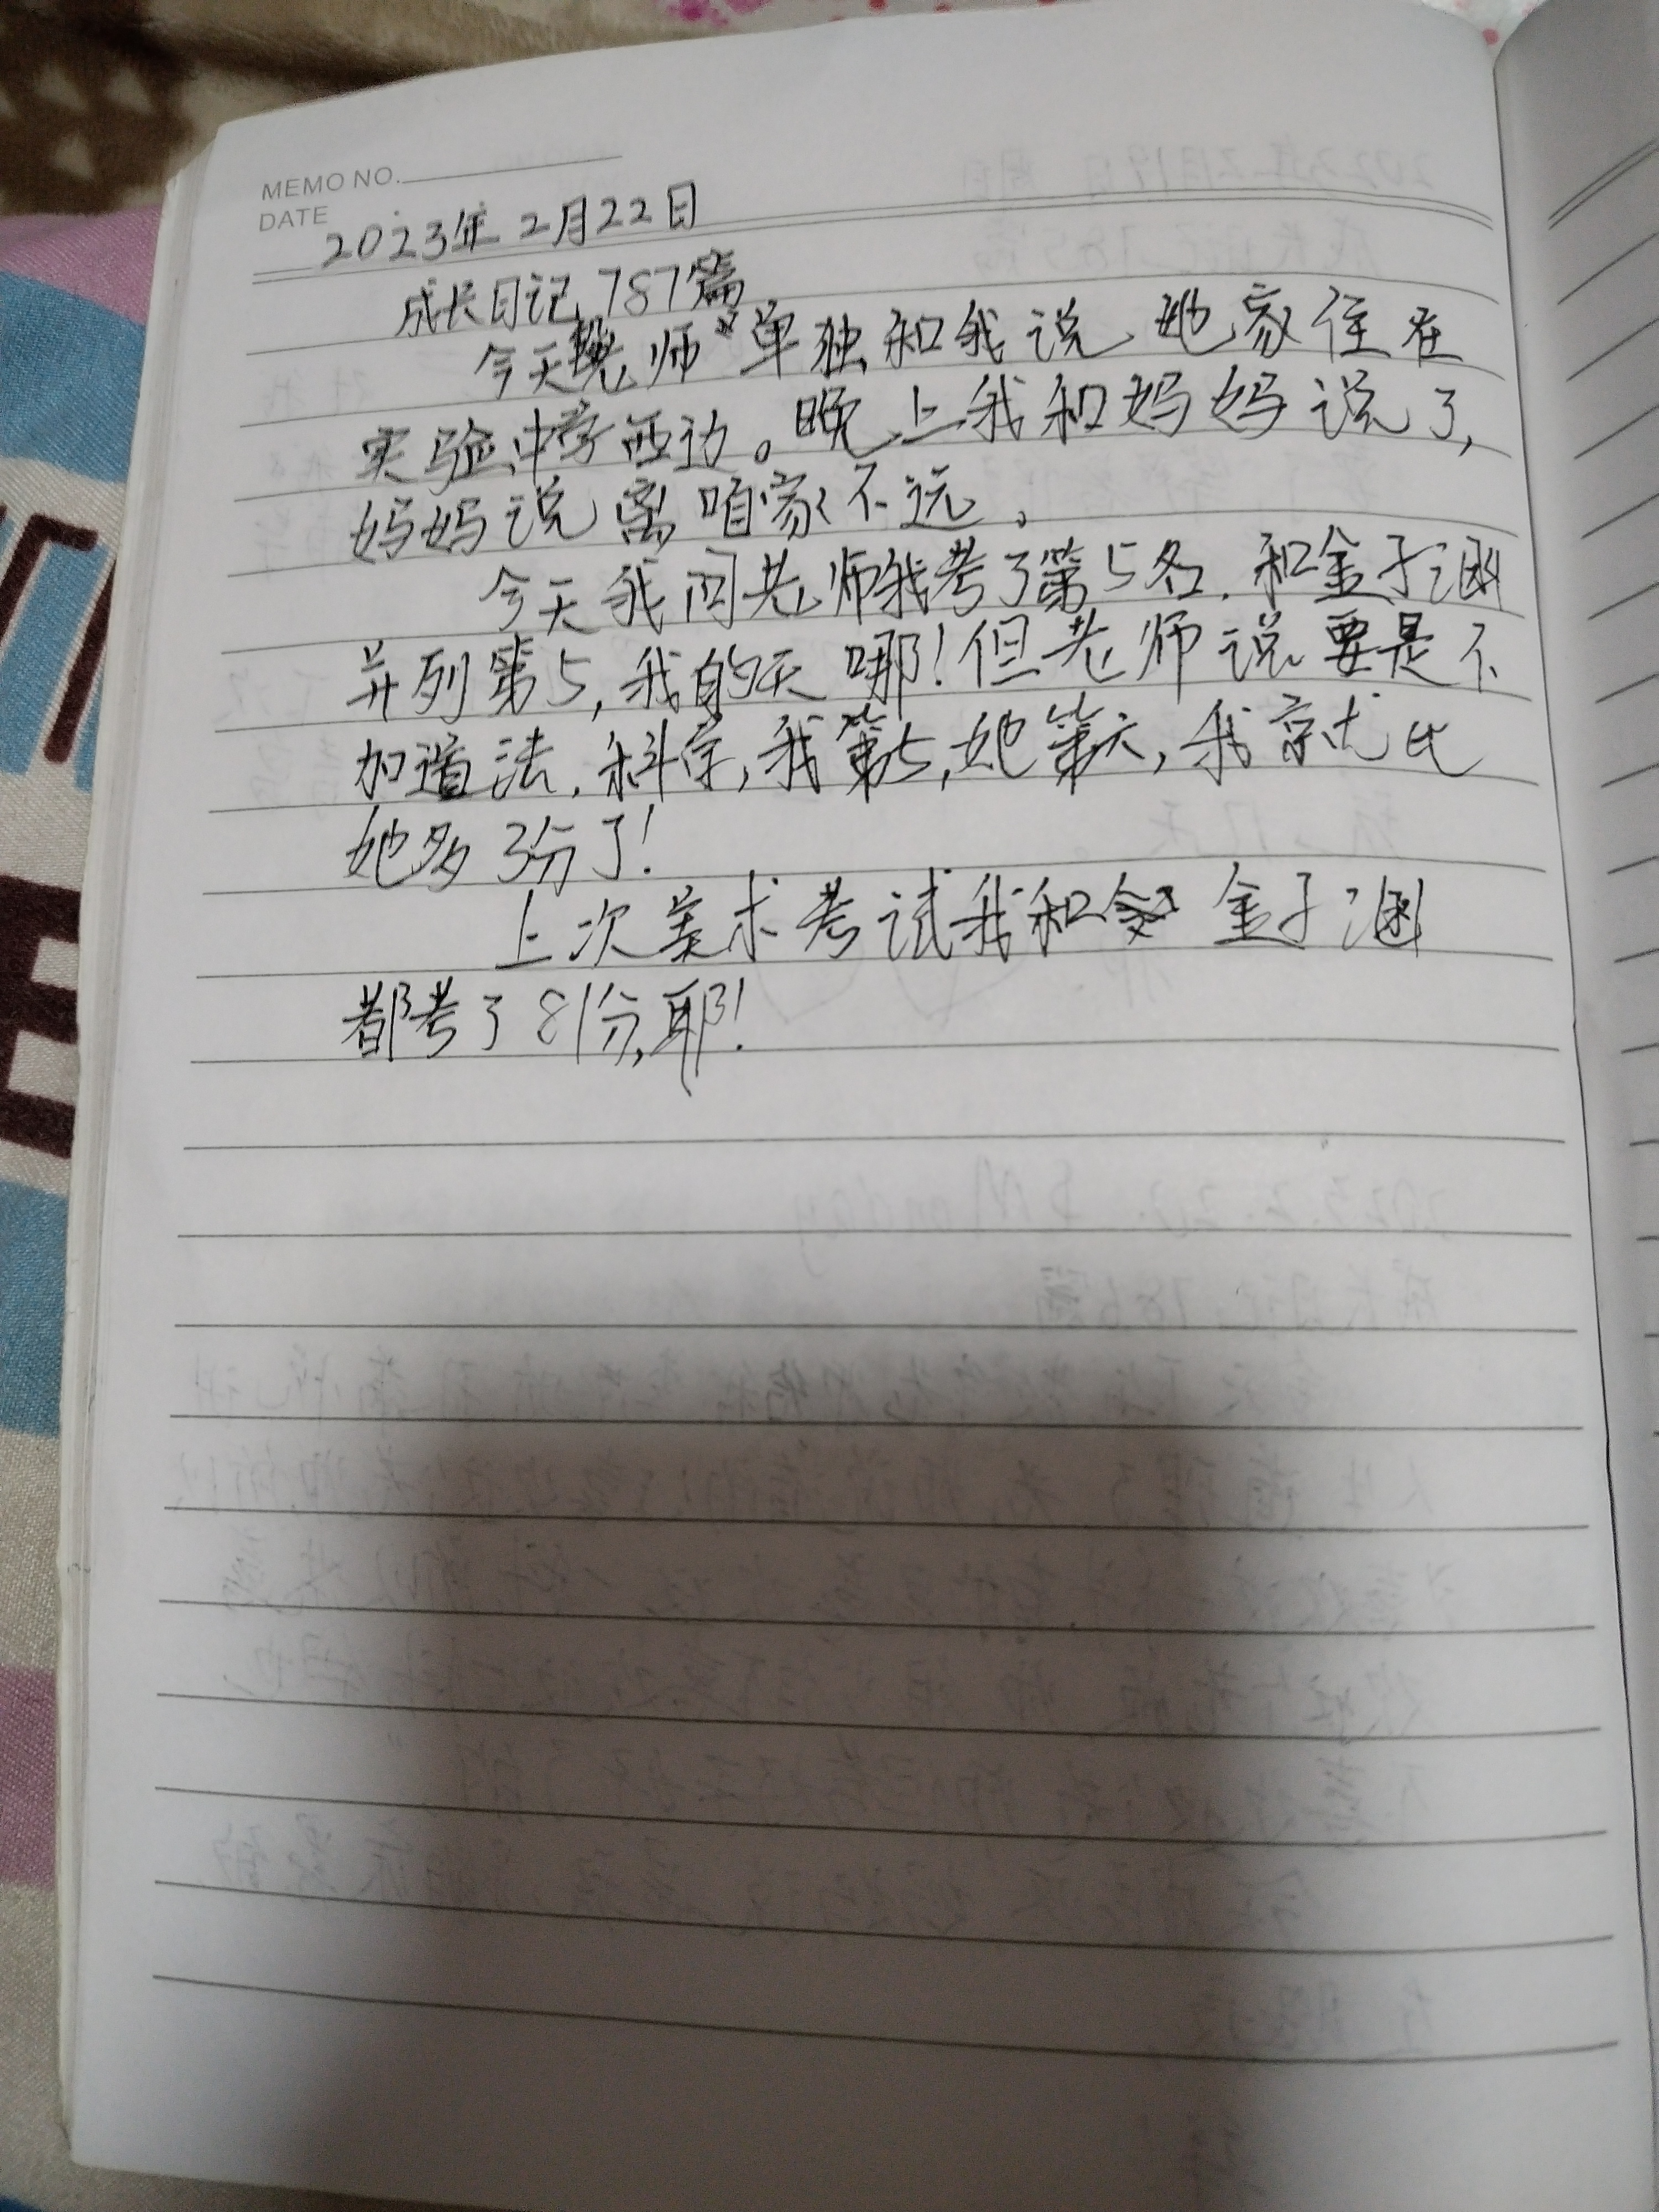 MEMO NO.
DATE
2023年2月22日
成长日记787篇
今天老师"单独和我说,她家住在
实验中学西边。晚上我和妈妈说了,
妈妈说离咱家不远。
今天我问老师我考了第5名,和金子涵
并列第5,我的天哪!但老师说要是不
加道法,科学,我第5,她第六,我就比
她多3分了!
上次美术考试我和金子涵
都考了81分,耶!